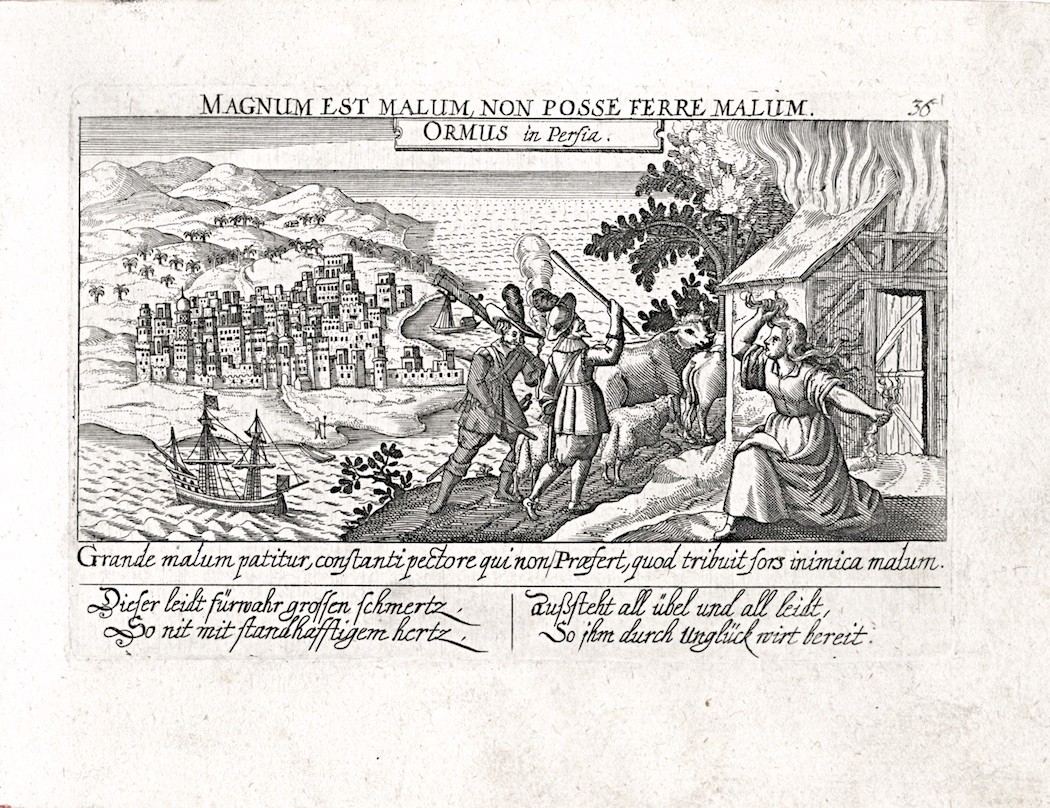 MAGNUM EST MALUM, NON POSSE FERRE MALUM.
36
ORMUS in Persia.
Grande malum patitur, constanti pectore qui non Præfert, quod tribuit sors inimica malum.
Dieser leidt fürwahr grossen schmertz,
So nit mit standhafftigem hertz,
Außsteht all übel und all leidt,
So jhm durch Unglück wirt bereit.